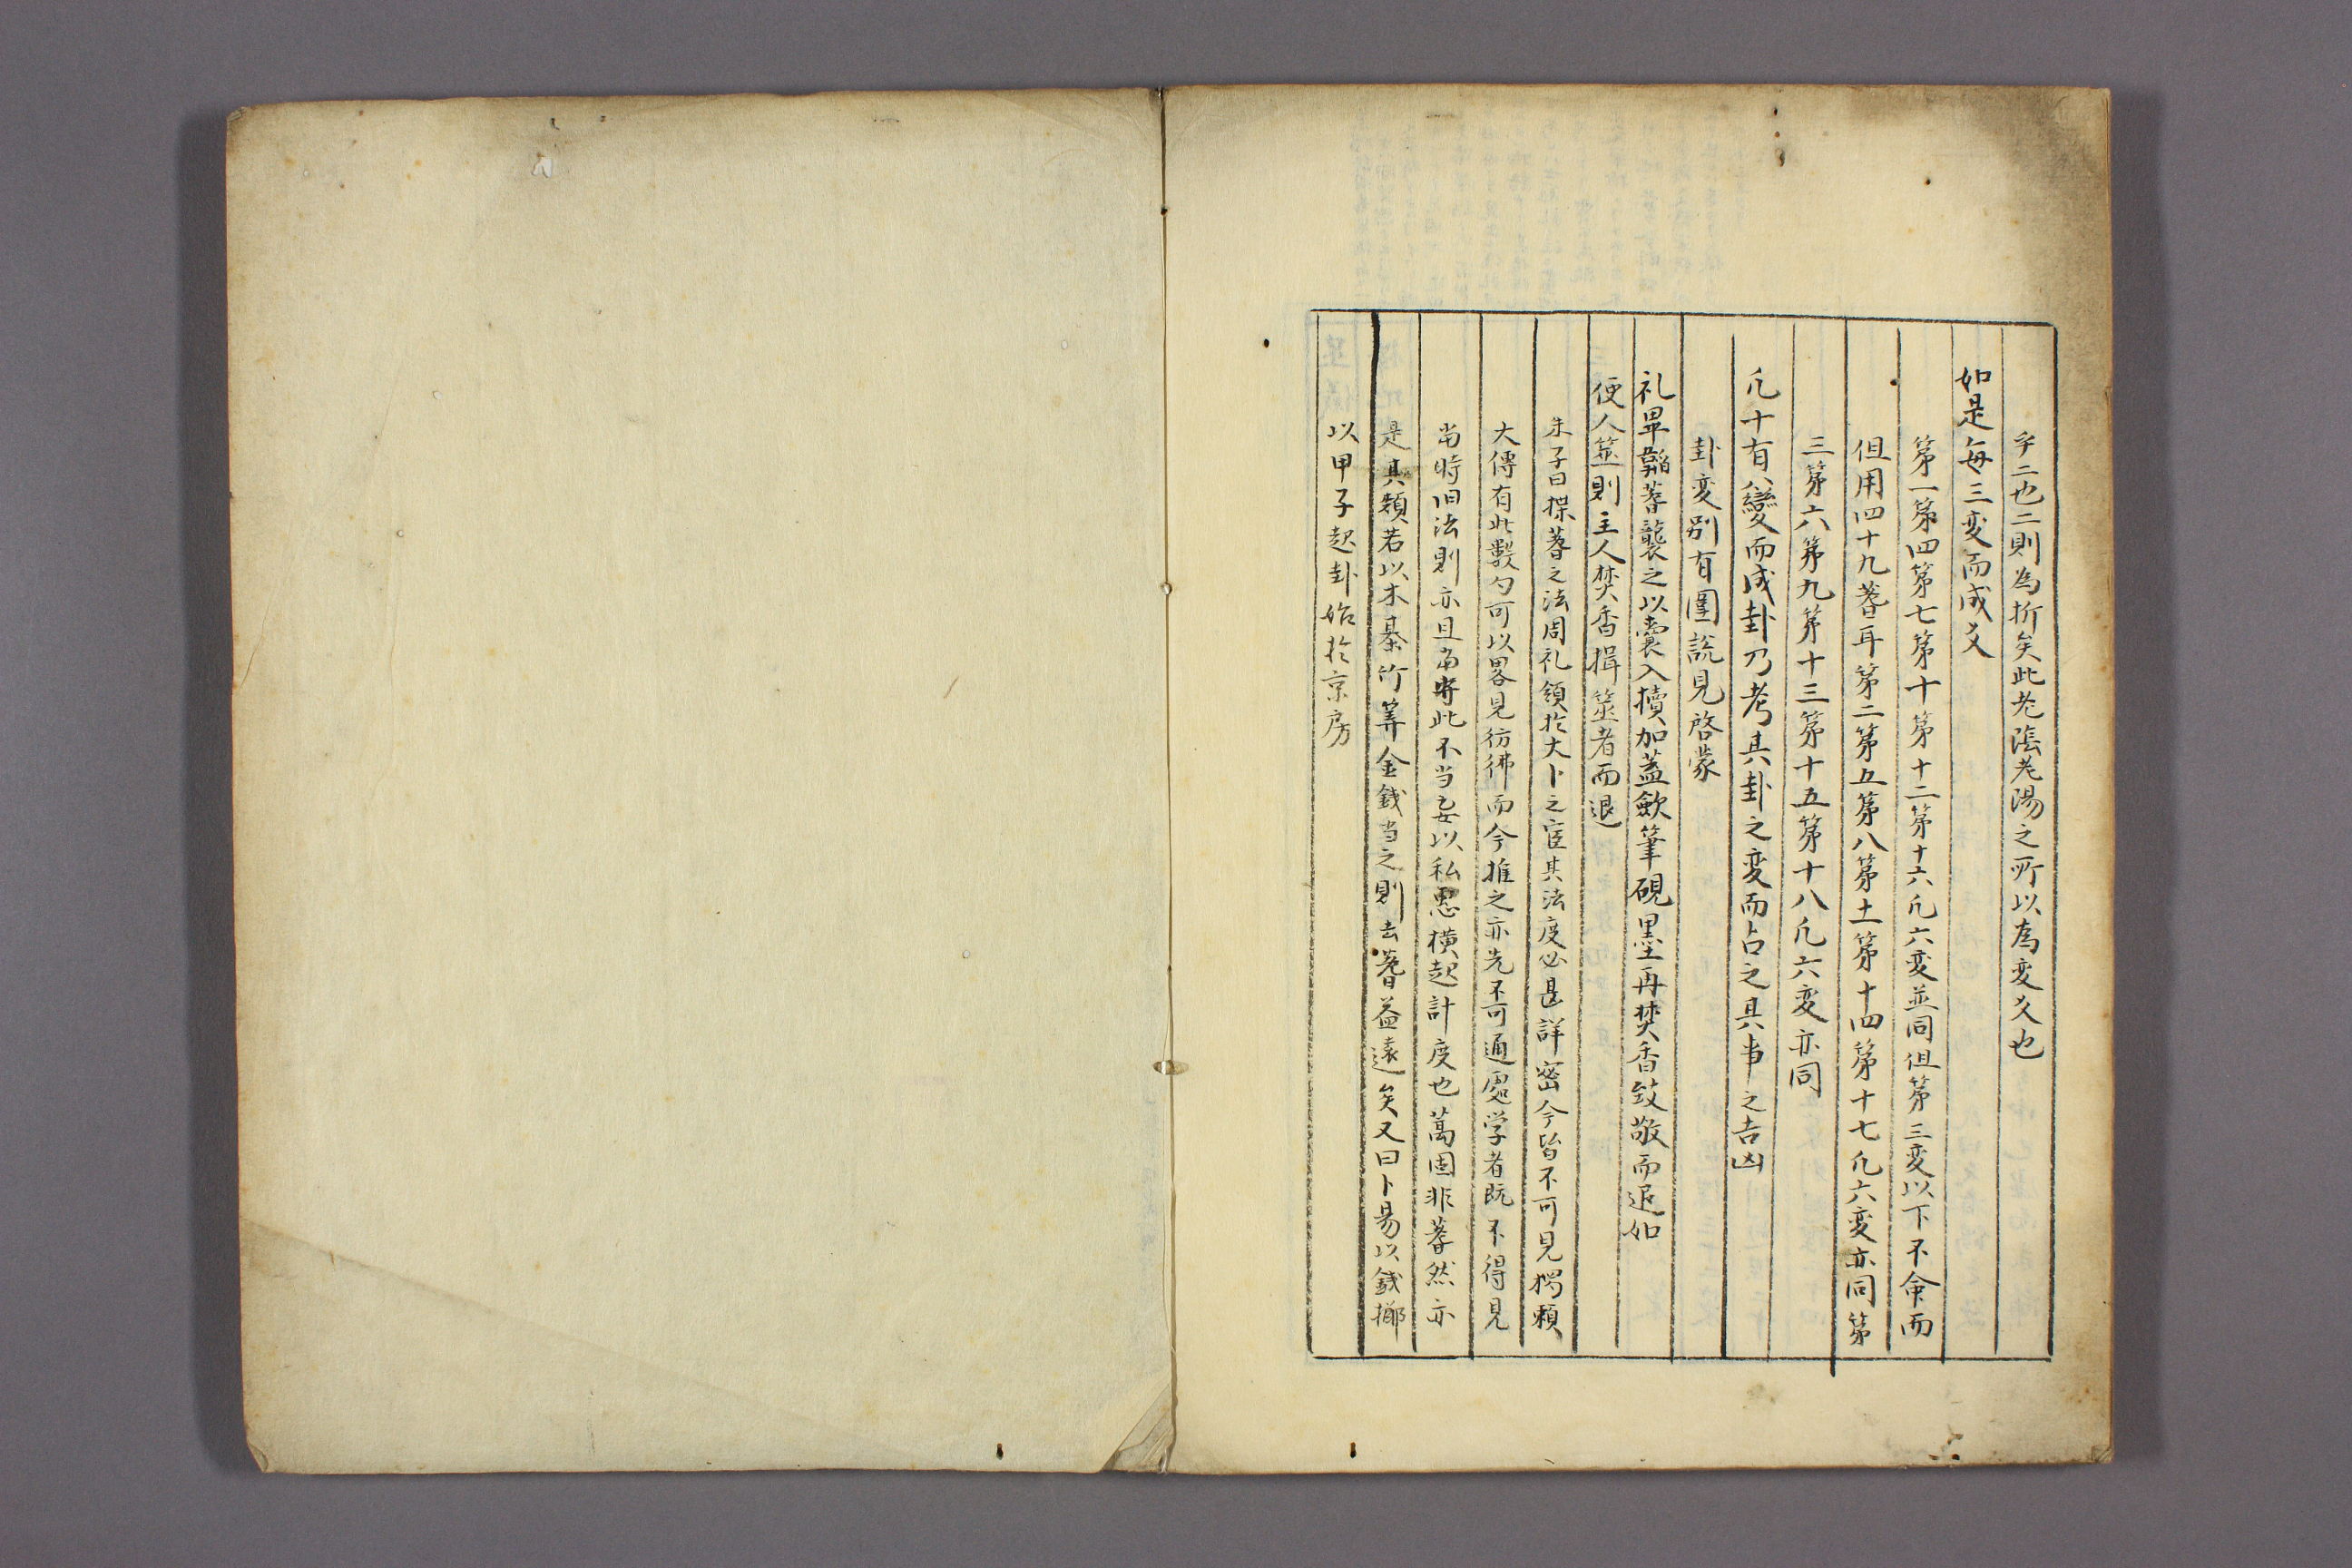 乎二也二則為折矣此老陰老陽之所以為変爻也
如是每三変而成爻
第一第四第七第十第十二第十六凢六変並同但第三変以下不命而
但用四十九蓍耳第二第五第八第十一第十四第十七凢六変亦同第
三第六第九第十三第十五第十八凢六変亦同
凢十有八變而成卦乃考其卦之変而占之具事之吉凶
卦変別有圖説見啓蒙
礼畢韜蓍襲之以囊入櫝加蓋歛筆硯墨再焚香致敬而退如
使人筮則主人焚香揖筮者而退
朱子曰揲蓍之法周礼領於大卜之官其法度必甚詳密今皆不可見獨頼
大傳有此數勺可以畧見彷彿而今推之亦先不可通處学者既不得見
当時旧法則亦且当守此不当妄以私意横起計度也萬固非蓍然亦
是其類若以木棊竹筭金銭当之則去蓍益遠矣又曰卜易以銭擲
以甲子起卦始於京房